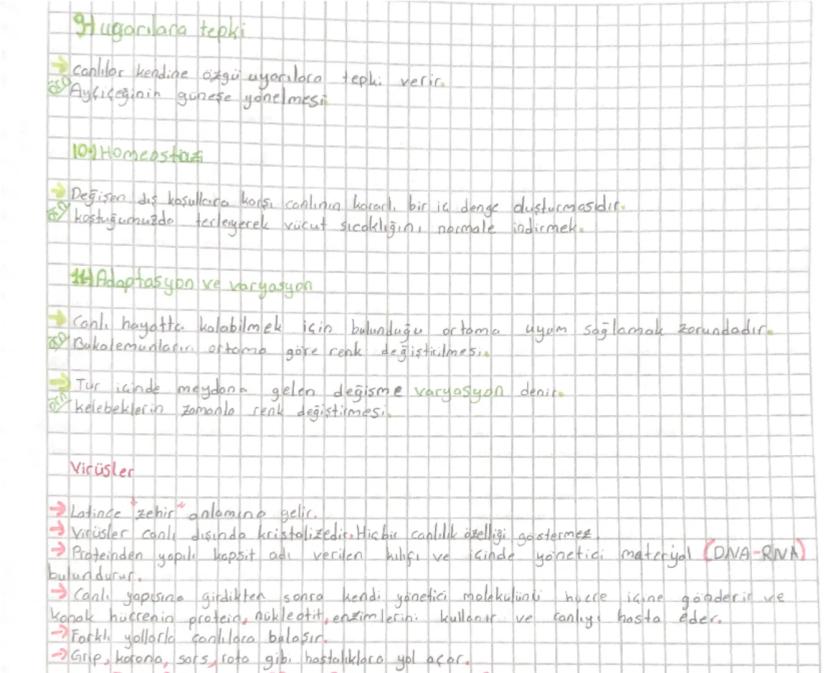 9-) uyarılara tepki
→ canlılar kendine özgü uyarılara tepki verir.
ÖRN Ayçiçeğinin güneşe yönelmesi
10-) Homeostazi
→ Değişen dış koşullara karşı canlının kararlı bir iç denge oluşturmasıdır.
ÖRN koştuğumuzda terleyerek vücut sıcaklığını normale indirmek.
11-) Adaptasyon ve varyasyon
→ Canlı hayatta kalabilmek için bulunduğu ortama uyum sağlamak zorundadır.
ÖRN Bukalemunların ortama göre renk değiştirilmesi.
→ Tür içinde meydana gelen değişme varyasyon denir.
ÖRN kelebeklerin zamanla renk değiştirmesi.
Virüsler
→ Latince "zehir" anlamına gelir.
→ Virüsler canlı dışında kristalizedir. Hiçbir canlılık özelliği göstermez.
→ Proteinden yapılı kapsit adı verilen kılıfı ve içinde yönetici materyal (DNA-RNA)
bulundurur.
→ Canlı yapısına girdikten sonra kendi yönetici molekülünü hücre içine gönderir ve
konak hücrenin protein, nükleotit, enzimlerini kullanır ve canlıyı hasta eder.
→ Farklı yollarla canlılara bulaşır.
→ Grip, korona, sars, rota gibi hastalıklara yol açar.